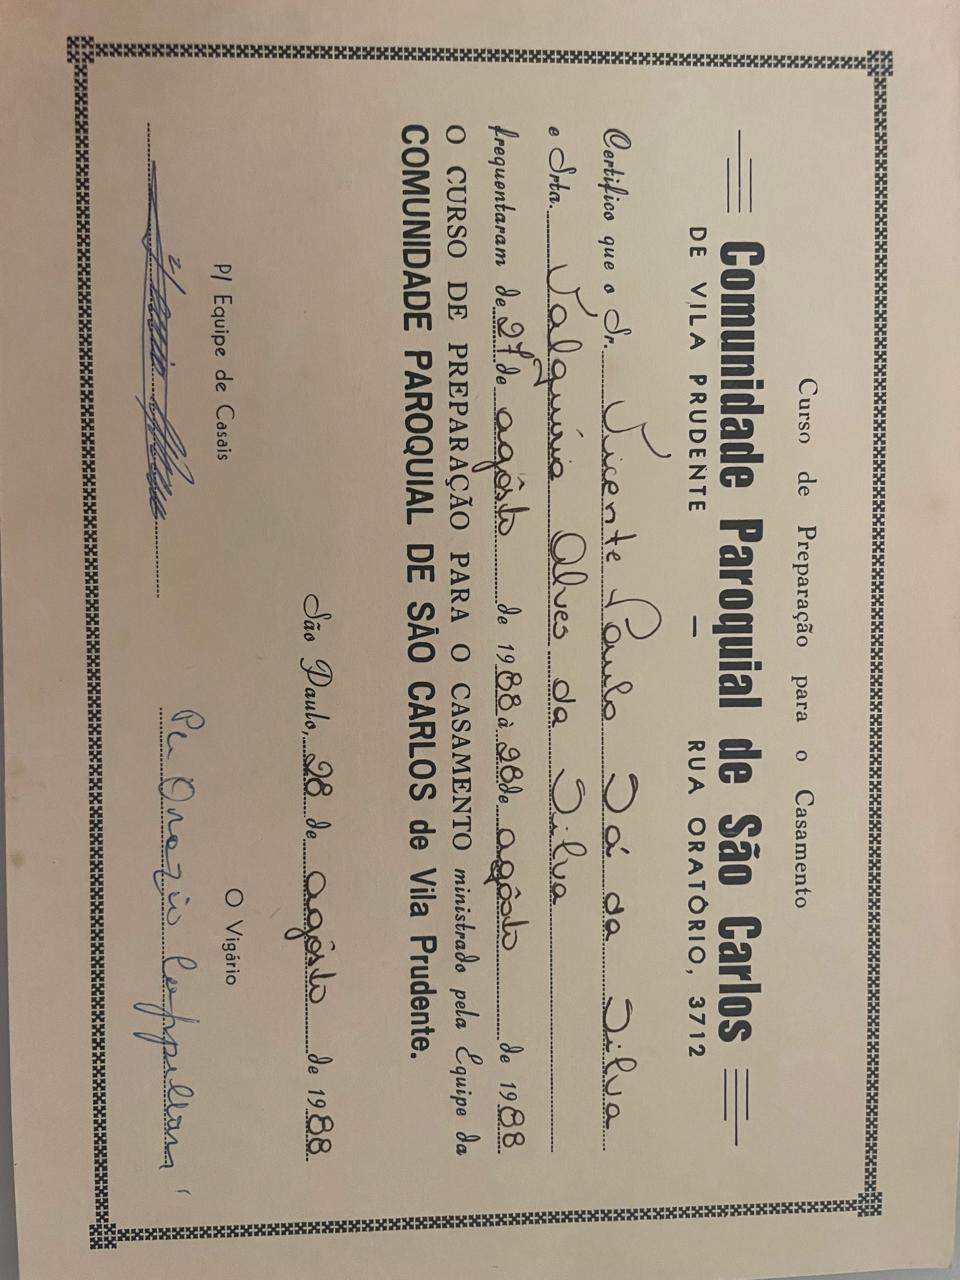 Curso de Preparação para o Casamento
Comunidade Paroquial de São Carlos
DE VILA PRUDENTE — RUA ORATÓRIO, 3712
Certifico que o Sr. Vicente Paulo Sá da Silva
e Srta. Valquíria Alves da Silva
frequentaram de 27 de agôsto de 1988 à 28 de agôsto de 1988
O CURSO DE PREPARAÇÃO PARA O CASAMENTO ministrado pela Equipe da
COMUNIDADE PAROQUIAL DE SÃO CARLOS de Vila Prudente.
São Paulo, 28 de agôsto de 1988
P/ Equipe de Casais
O Vigário
Pe Orazio